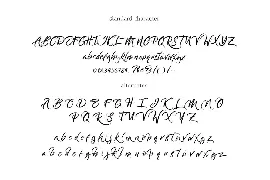 Standard Character
ABCDEFGHIJKLMNOPQRSTUVWXYZ
abcdefghijklmnopqrstuvwxyz
0123456789
alternates
ABCDEFGHIJKLMNO
PQRSTUVWXYZ
abcdefghijklmnopqrstuvwxyz
abcdefghijklmnopqrstuvwxyz